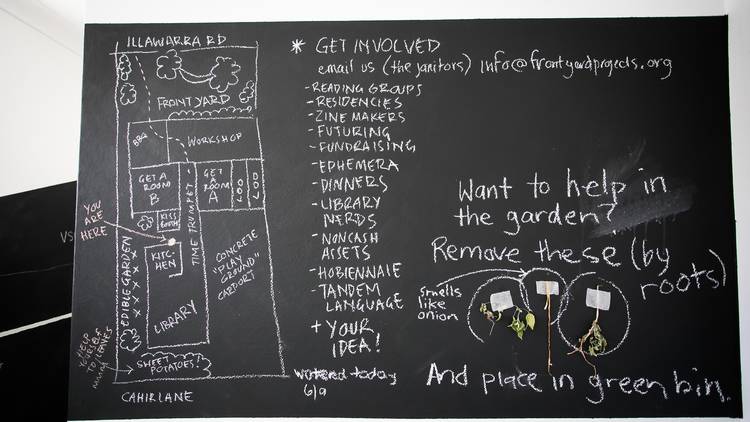 ILLAWARRA RD
FRONT YARD
BBQ
WORKSHOP
GET A
ROOM
B
GET
A
ROOM
A
LOO
LOO
KISS
BOOTH
TIME TRUMPET
YOU
ARE
HERE
KITC-
HEN
EDIBLE GARDEN
X X X X X X
CONCRETE
"PLAY
GROUND"
CARPORT
LIBRARY
HELP
YOURSELF
TO LEAVES
SWEET
POTATOES!
CAHIR LANE
* GET INVOLVED
email us (the janitors) info@frontyardprojects.org
- READING GROUPS
- RESIDENCIES
- ZINE MAKERS
- FUTURING
- FUNDRAISING
- EPHEMERA
- DINNERS
- LIBRARY
NERDS
- NONCASH
ASSETS
- HOBIENNALE
- TANDEM
LANGUAGE
+ YOUR
IDEA!
watered today
6/9
Want to help in
the garden?
Remove these (by
roots)
smells
like
onion
And place in green bin.
VS